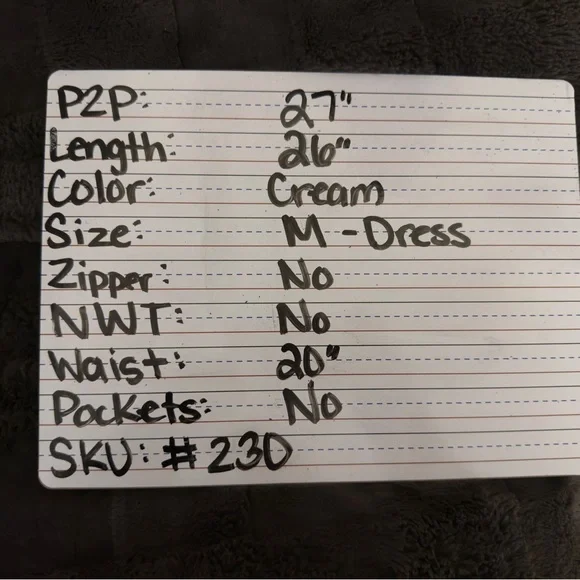 P2P: 27"
Length: 26"
Color: Cream
Size: M - Dress
Zipper: No
NWT: No
Waist: 20"
Pockets: No
SKU: #230